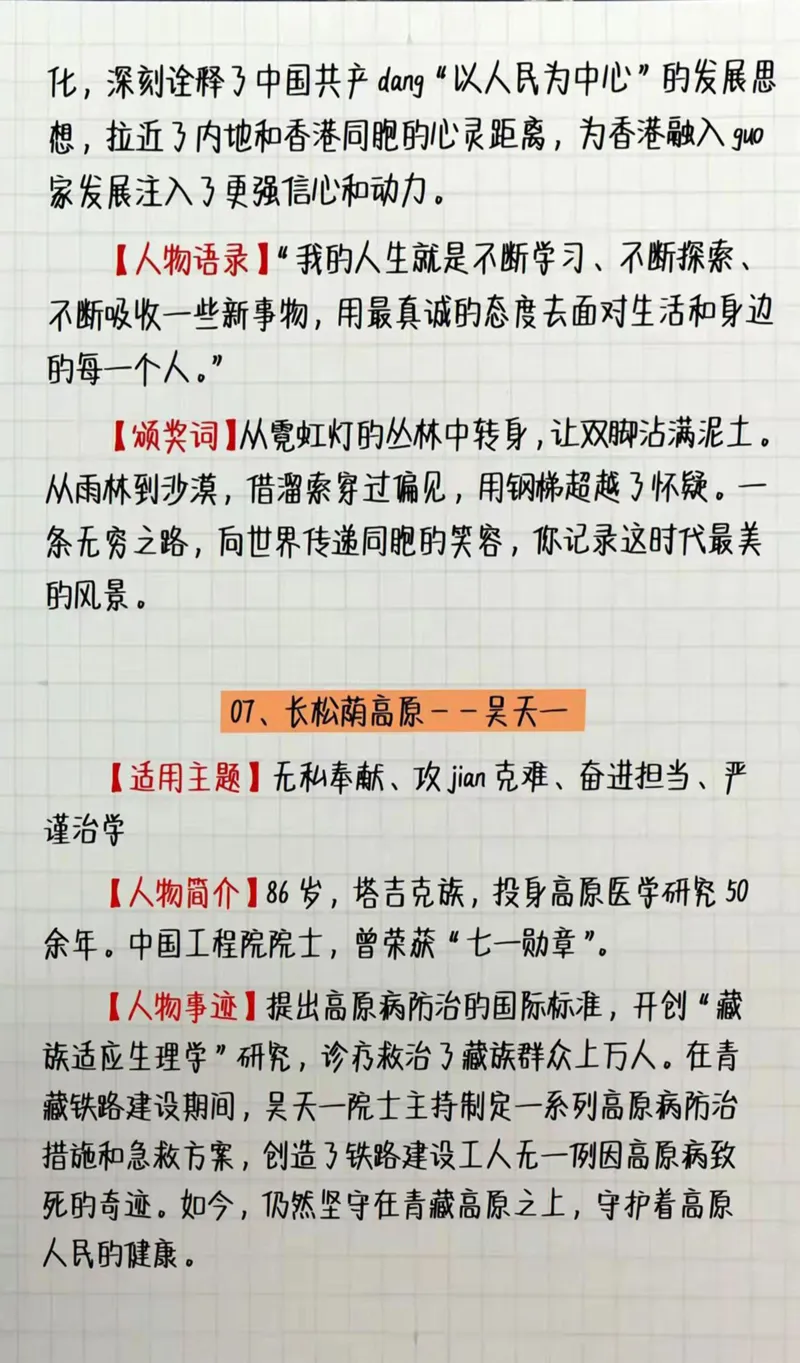 化，深刻诠释了中国共产dang“以人民为中心”的发展思
想，拉近了内地和香港同胞的心灵距离，为香港融入guo
家发展注入了更强信心和动力。
【人物语录】“我的人生就是不断学习、不断探索、
不断吸收一些新事物，用最真诚的态度去面对生活和身边
的每一个人。”
【颁奖词】从霓虹灯的丛林中转身，让双脚沾满泥土。
从雨林到沙漠，借溜索穿过偏见，用钢梯超越了怀疑。一
条无穷之路，向世界传递同胞的笑容，你记录这时代最美
的风景。
07、长松荫高原——吴天一
【适用主题】无私奉献、攻jian克难、奋进担当、严
谨治学
【人物简介】86岁，塔吉克族，投身高原医学研究50
余年。中国工程院院士，曾荣获“七一勋章”。
【人物事迹】提出高原病防治的国际标准，开创“藏
族适应生理学”研究，诊疗救治了藏族群众上万人。在青
藏铁路建设期间，吴天一院士主持制定一系列高原病防治
措施和急救方案，创造了铁路建设工人无一例因高原病致
死的奇迹。如今，仍然坚守在青藏高原之上，守护着高原
人民的健康。